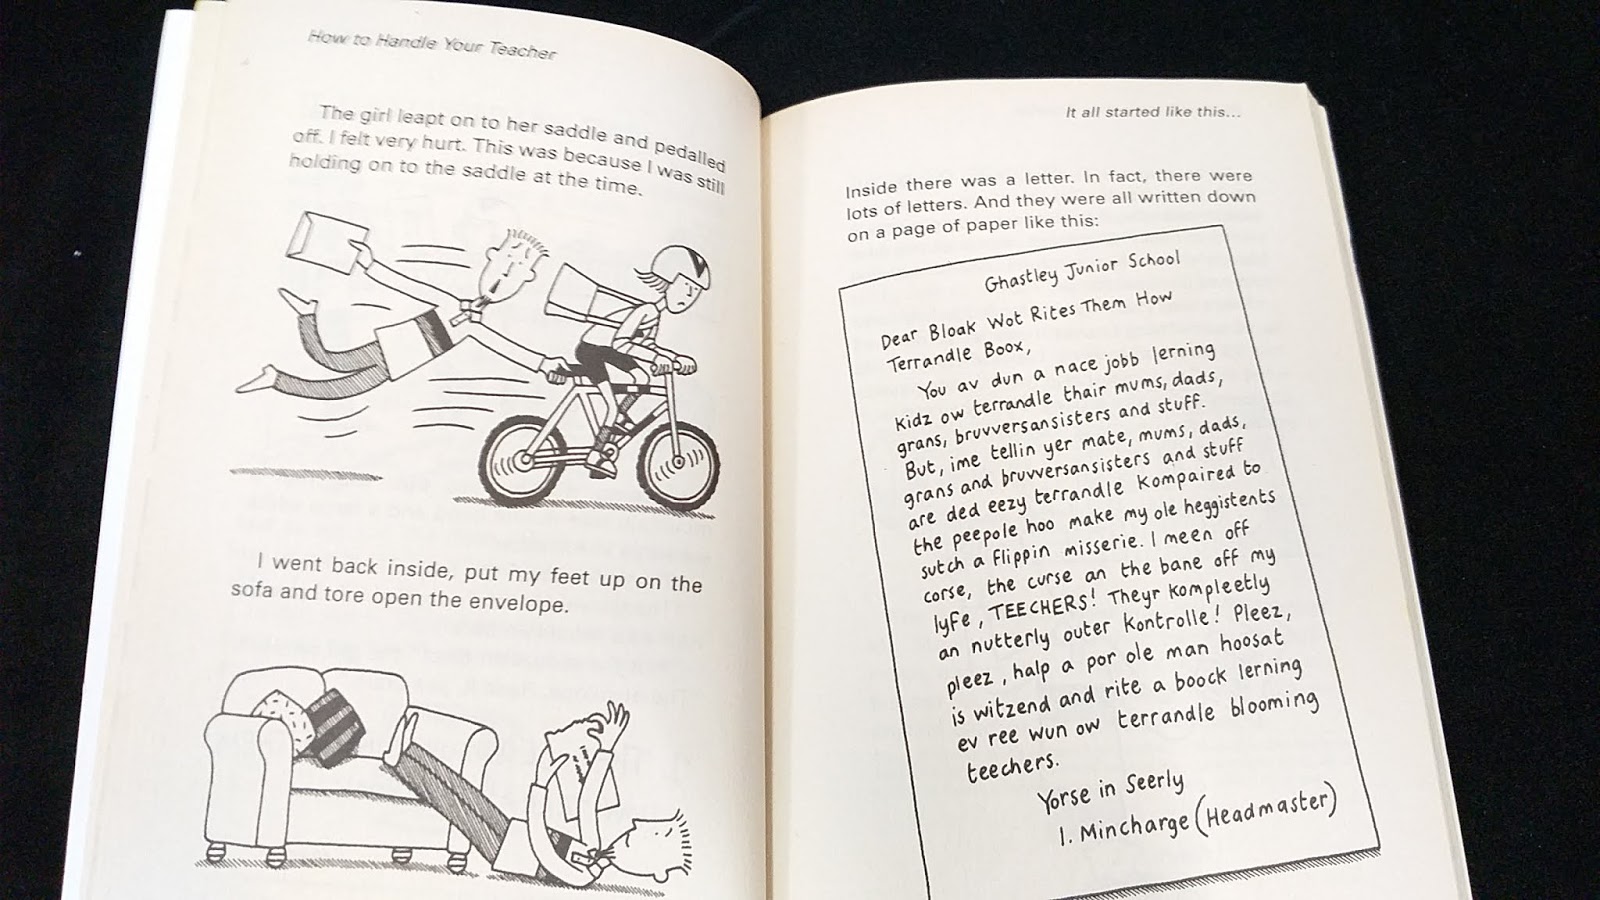 How to Handle Your Teacher
The girl leapt on to her saddle and pedalled
off. I felt very hurt. This was because I was still
holding on to the saddle at the time.
I went back inside, put my feet up on the
sofa and tore open the envelope.
It all started like this...
Inside there was a letter. In fact, there were
lots of letters. And they were all written down
on a page of paper like this:
Ghastley Junior School
Dear Bloak Wot Rites Them How
Terrandle Boox,
You av dun a nace jobb lerning
kidz ow terrandle thair mums, dads,
grans, bruvversansisters and stuff.
But, ime tellin yer mate, mums, dads,
grans and bruvversansisters and stuff
are ded eezy terrandle kompaired to
the peepole hoo make my ole heggistents
sutch a flippin misserie. I meen off
corse, the curse an the bane off my
lyfe, TEECHERS! Theyr kompleetly
an nutterly outer kontrolle! Pleez,
pleez, halp a por ole man hoosat
is witzend and rite a boock lerning
ev ree wun ow terrandle blooming
teechers.
Yorse in Seerly
I. Mincharge (Headmaster)